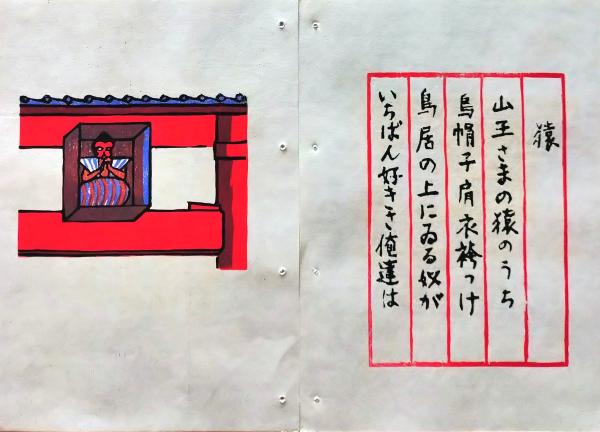 猿
山王さまの猿のうち
烏帽子肩衣袴つけ
鳥居の上にゐる奴が
いちばん好きさ俺達は